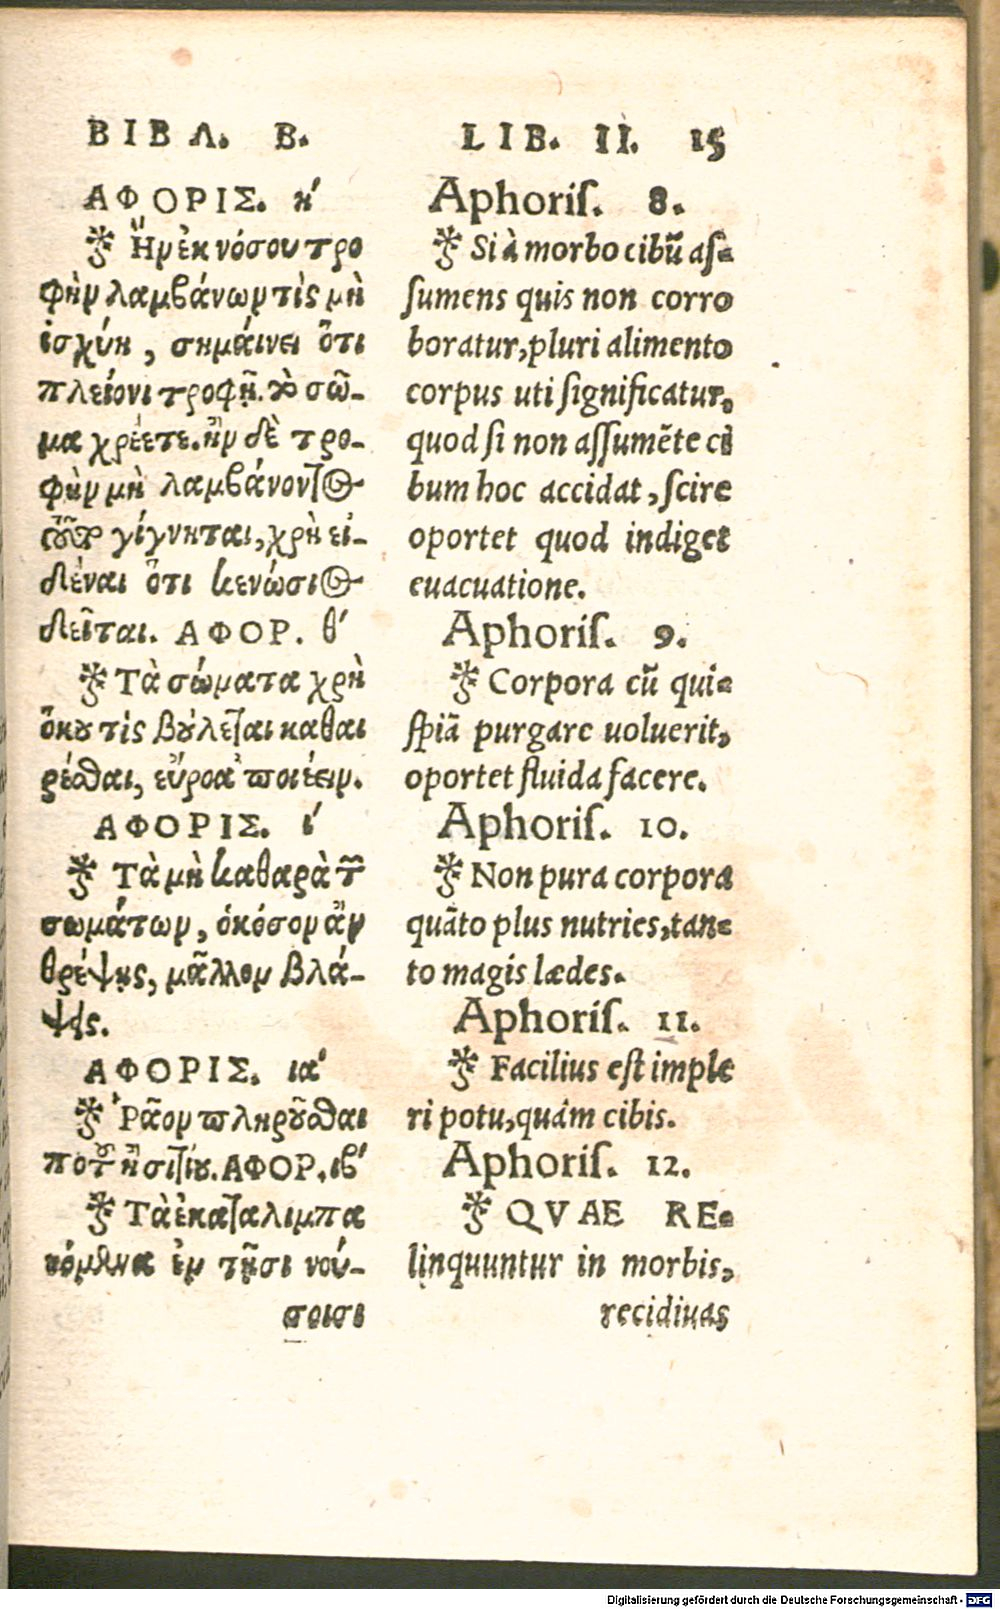 ΒΙΒΛ. Β.
ΑΦΟΡΙΣ. η΄
Ἢν ἐκ νόσου τρο
φὴν λαμβάνων τὶς μὴ
ἰσχύῃ, σημάινει ὅτι
πλείονι τροφῇ τὸ σῶ-
μα χρέετε. ἢν δὲ τρο-
φὴν μὴ λαμβάνοντος
τοῦτο γίγνηται, χρὴ εἰ-
δέναι ὅτι κενώσιος
δεῖται. ΑΦΟΡ. θ΄
Τὰ σώματα χρὴ
ὅκου τὶς βούλεται καθαι
ρέσθαι, εὔροα ποιέειν.
ΑΦΟΡΙΣ. ι΄
Τὰ μὴ καθαρὰ τῶν
σωμάτων, ὁκόσον ἂν
θρέψῃς, μᾶλλον βλά-
ψεις.
ΑΦΟΡΙΣ. ια΄
Ῥᾶον πληροῦσθαι
ποτοῦ ἢ σιτίου. ΑΦΟΡ. ιβ΄
Τὰ ἐκαταλιμπα
νόμενα ἐν τῇσι νού-
σοισι
LIB. II. 15
Aphoriſ. 8.
Si à morbo cibũ aſ-
ſumens quis non corro
boratur, pluri alimento
corpus uti ſignificatur,
quod ſi non aſſumẽte ci
bum hoc accidat, ſcire
oportet quod indiget
euacuatione.
Aphoriſ. 9.
Corpora cũ qui-
ſpiã purgare uoluerit,
oportet fluida facere.
Aphoriſ. 10.
Non pura corpora
quãto plus nutries, tan-
to magis lædes.
Aphoriſ. 11.
Facilius eſt imple
ri potu, quâm cibis.
Aphoriſ. 12.
QVAE RE-
linquuntur in morbis,
recidiuas
Digitalisierung gefördert durch die Deutsche Forschungsgemeinschaft - DFG